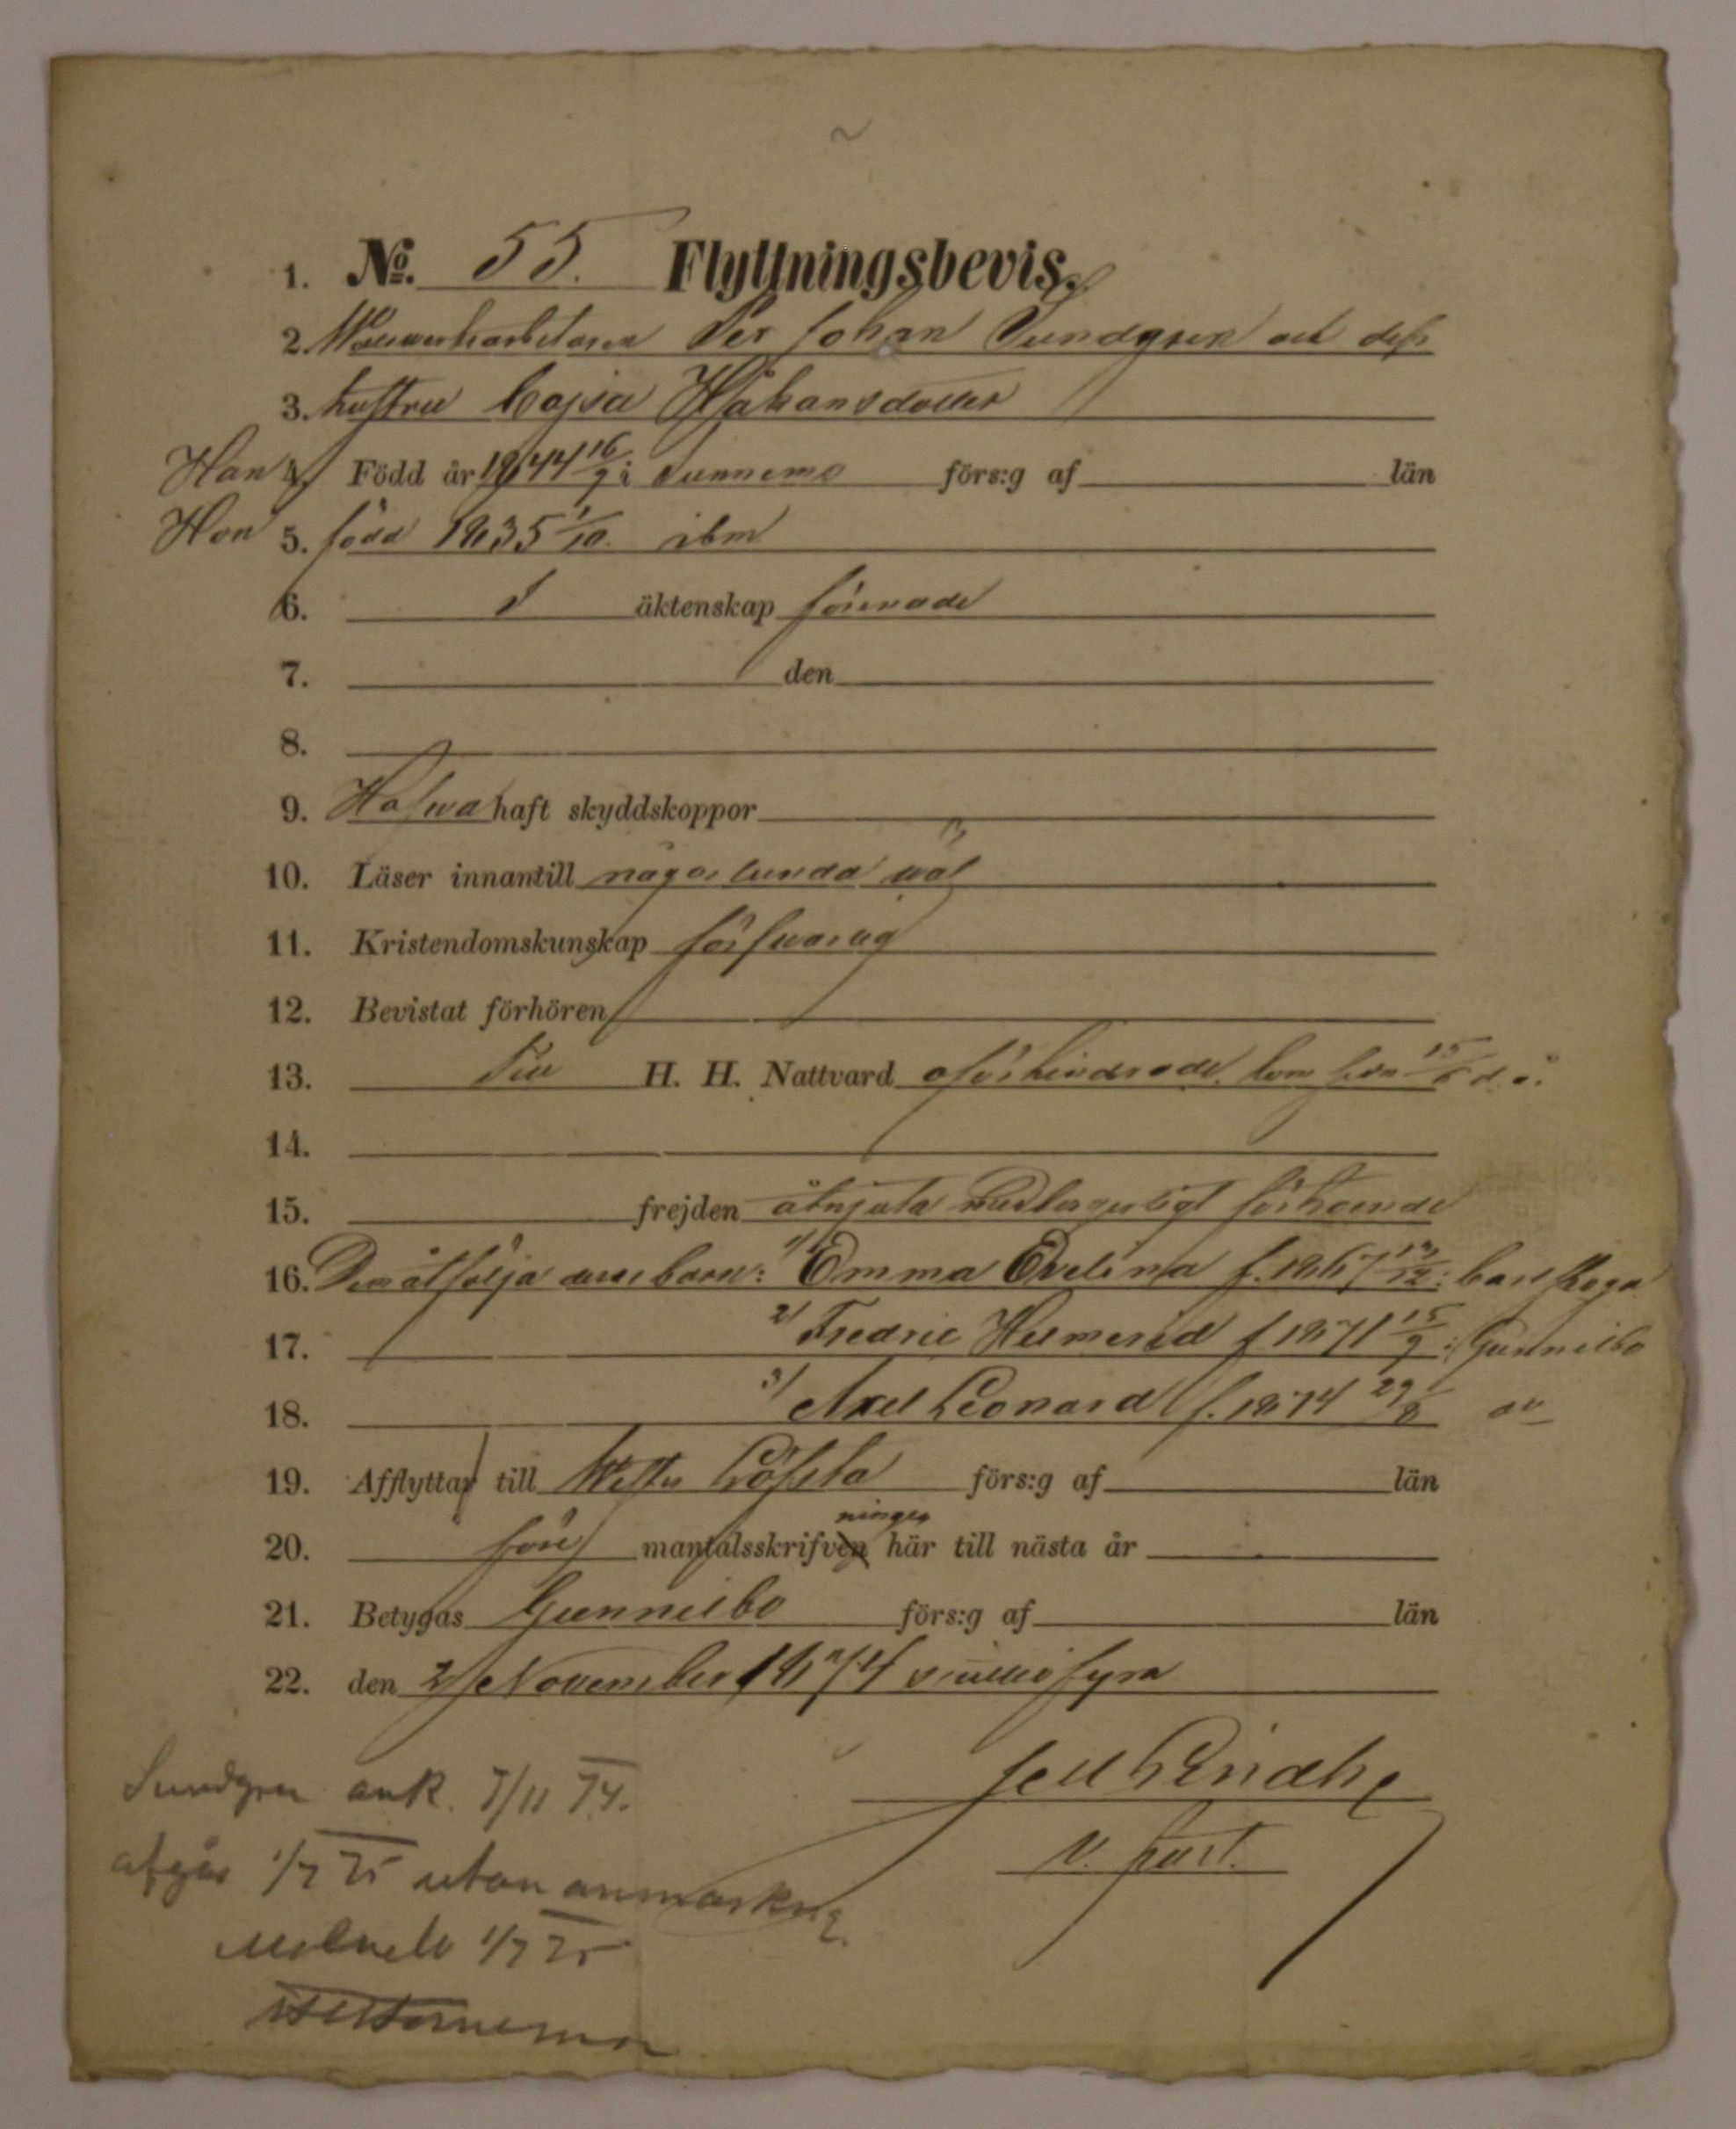 1. No. 55. Flyttningsbevis.
2. Per Johan Sundgren och dess
3. hustru Cajsa Håkansdotter
Han 4. Född år 1844 16/9 i Sunnemo förs:g af län
Hon 5. född 1835 1/10. ibm
6. I äktenskap förenade
7. den
8.
9. Hafwa haft skyddskoppor
10. Läser innantill någorlunda wäl
11. Kristendomskunskap förswarlig
12. Bevistat förhören
13. Till H. H. Nattvard oförhindrade. 15/6 d. å.
14.
15. frejden åtnjuta medborgerligt förtroende
16. Dem åtfölja deras barn: 1/ Emma Evelina f. 1867 13/12 i Carlskoga
17. 2/ Fredric Helmerid f 1871 15/9 i Gunnilbo
18. 3/ Axel Leonard f. 1874 29/8
19. Afflyttar till Wester Löfsta förs:g af län
20. före mantalsskrifven ningen här till nästa år
21. Betygas Gunnilbo förs:g af län
22. den 2 November 1874 sjuttiofyra
v. past.
Sundgren ank. 7/11 74.
afgår 1/7 75 utan anmärkning
1/7 75